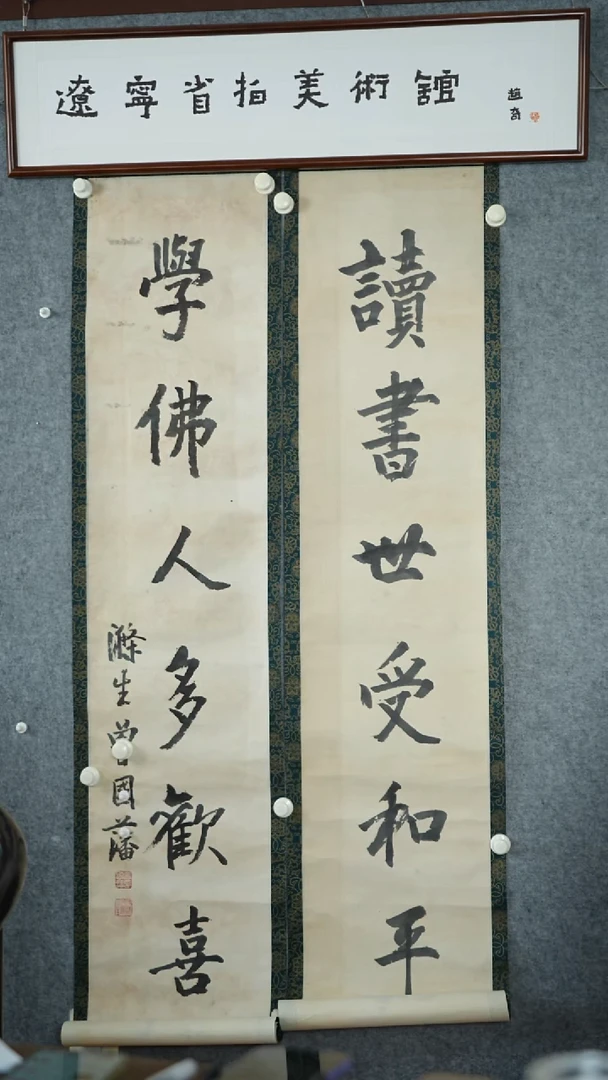 遼寧省拍美術館
趙奇
讀書世受和平
學佛人多歡喜
滌生曾國藩